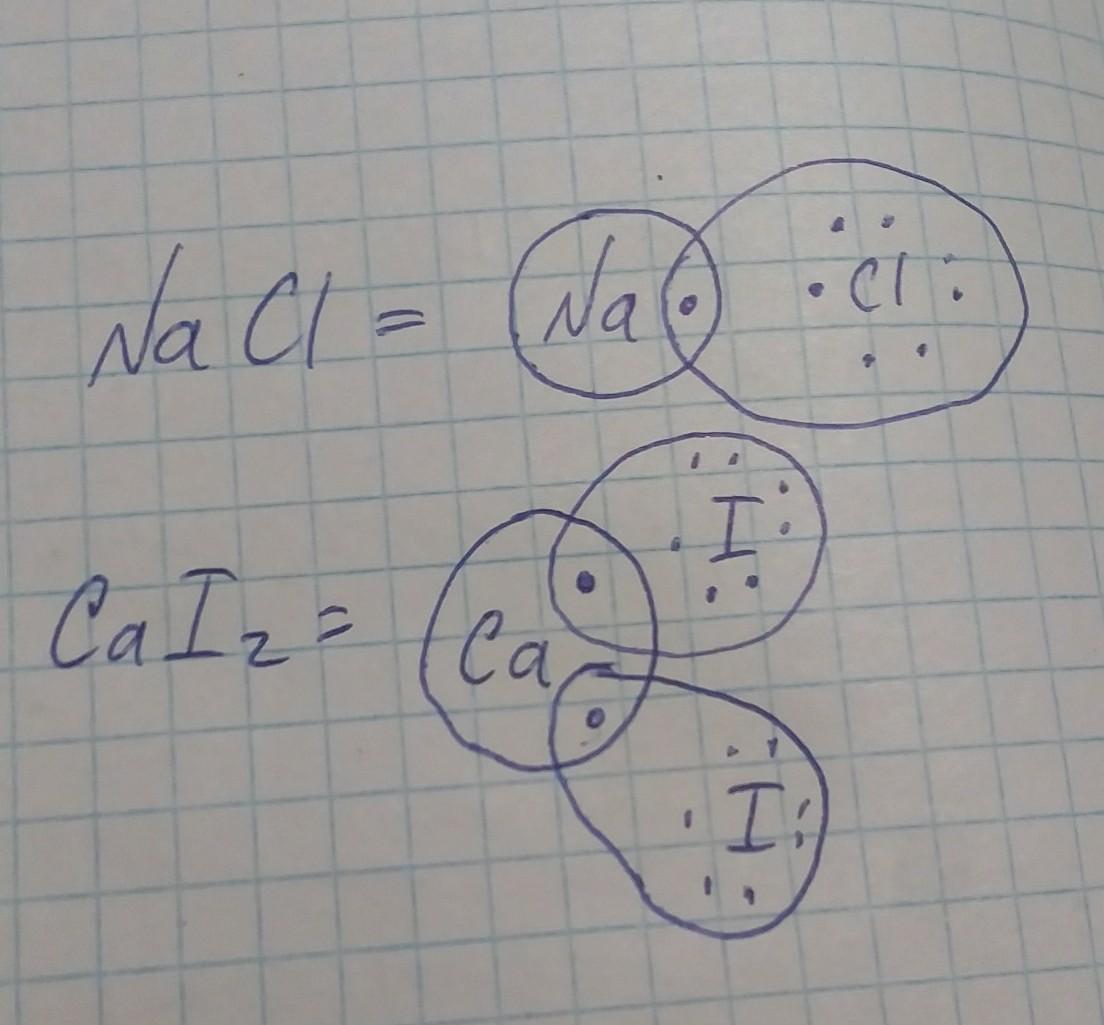 NaCl = Na Cl
CaI₂ = Ca I
I